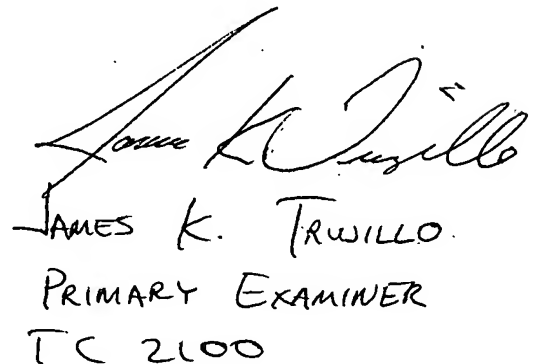 James K Trujillo
JAMES K. TRUJILLO.
PRIMARY EXAMINER
TC 2100